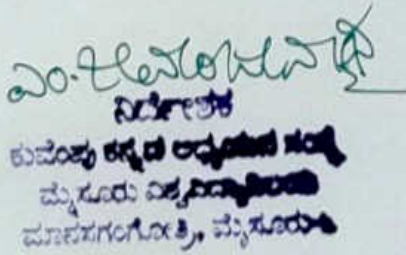 ಎಂ.
ನಿರ್ದೇಶಕ
ಕುವೆಂಪು ಕನ್ನಡ ಅಧ್ಯಯನ ಸಂಸ್ಥೆ
ಮೈಸೂರು ವಿಶ್ವವಿದ್ಯಾನಿಲಯ
ಮಾನಸಗಂಗೋತ್ರಿ, ಮೈಸೂರು